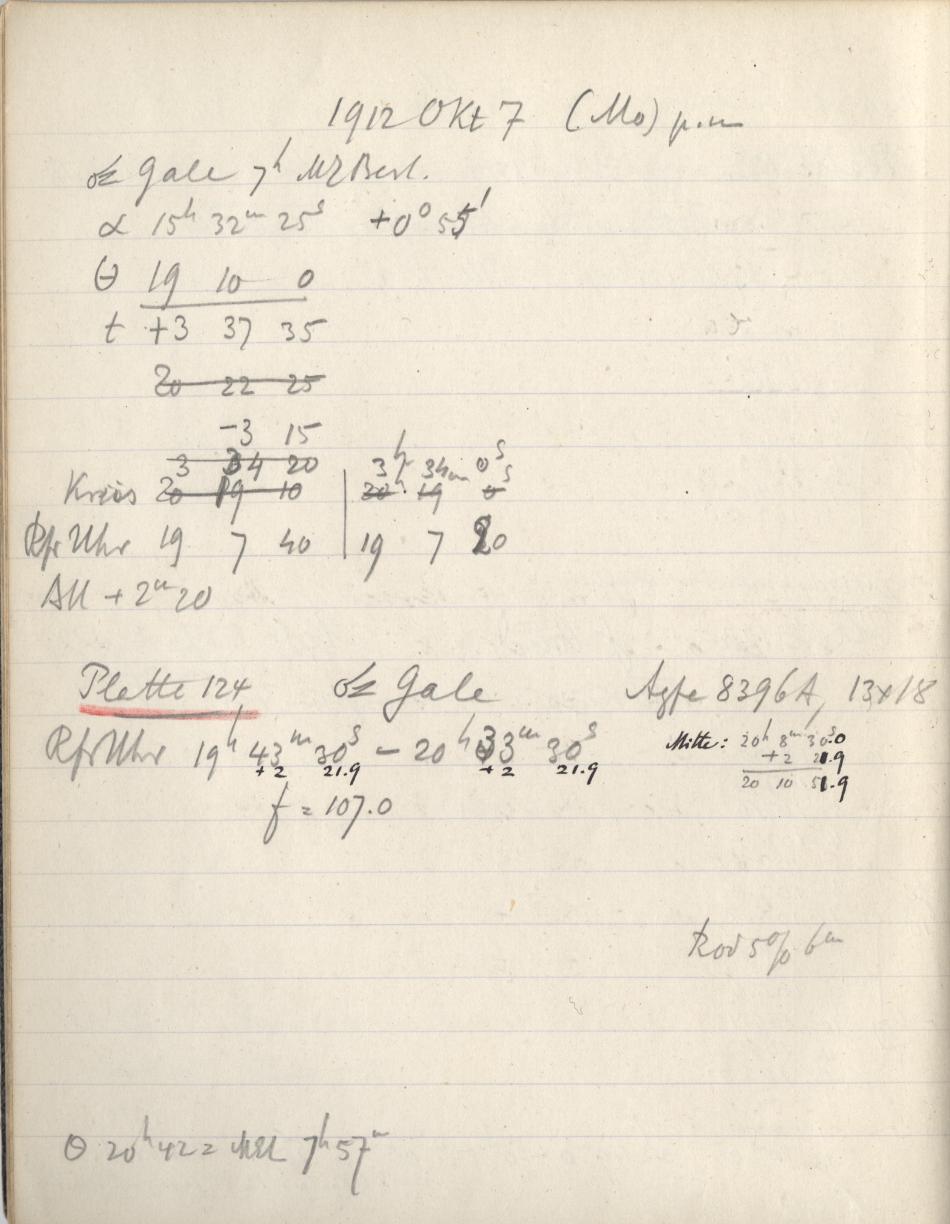 1912 Okt 7 (Mo) p.m
Gale 7h MZ Berl.
α 15h 32m 25s +0° 55'
Θ 19 10 0
t +3 37 35
20 22 25
-3 15
3 34 20 3h 34m 0s
Kreis 20 19 10 20h 19 0s
Rfr Uhr 19 7 40 19 7 20
ΔU + 2m 20
Platte 124 Gale Agfa 8396A, 13x18
Rfr Uhr 19h 43m 30s – 20h 33m 30s Mitte: 20h 8m 30s.0
+2 21.9 +2 21.9 +2 21.9
20 10 51.9
f = 107.0
Rod 5% 6m
Θ 20h 42 = MEZ 7h 57m